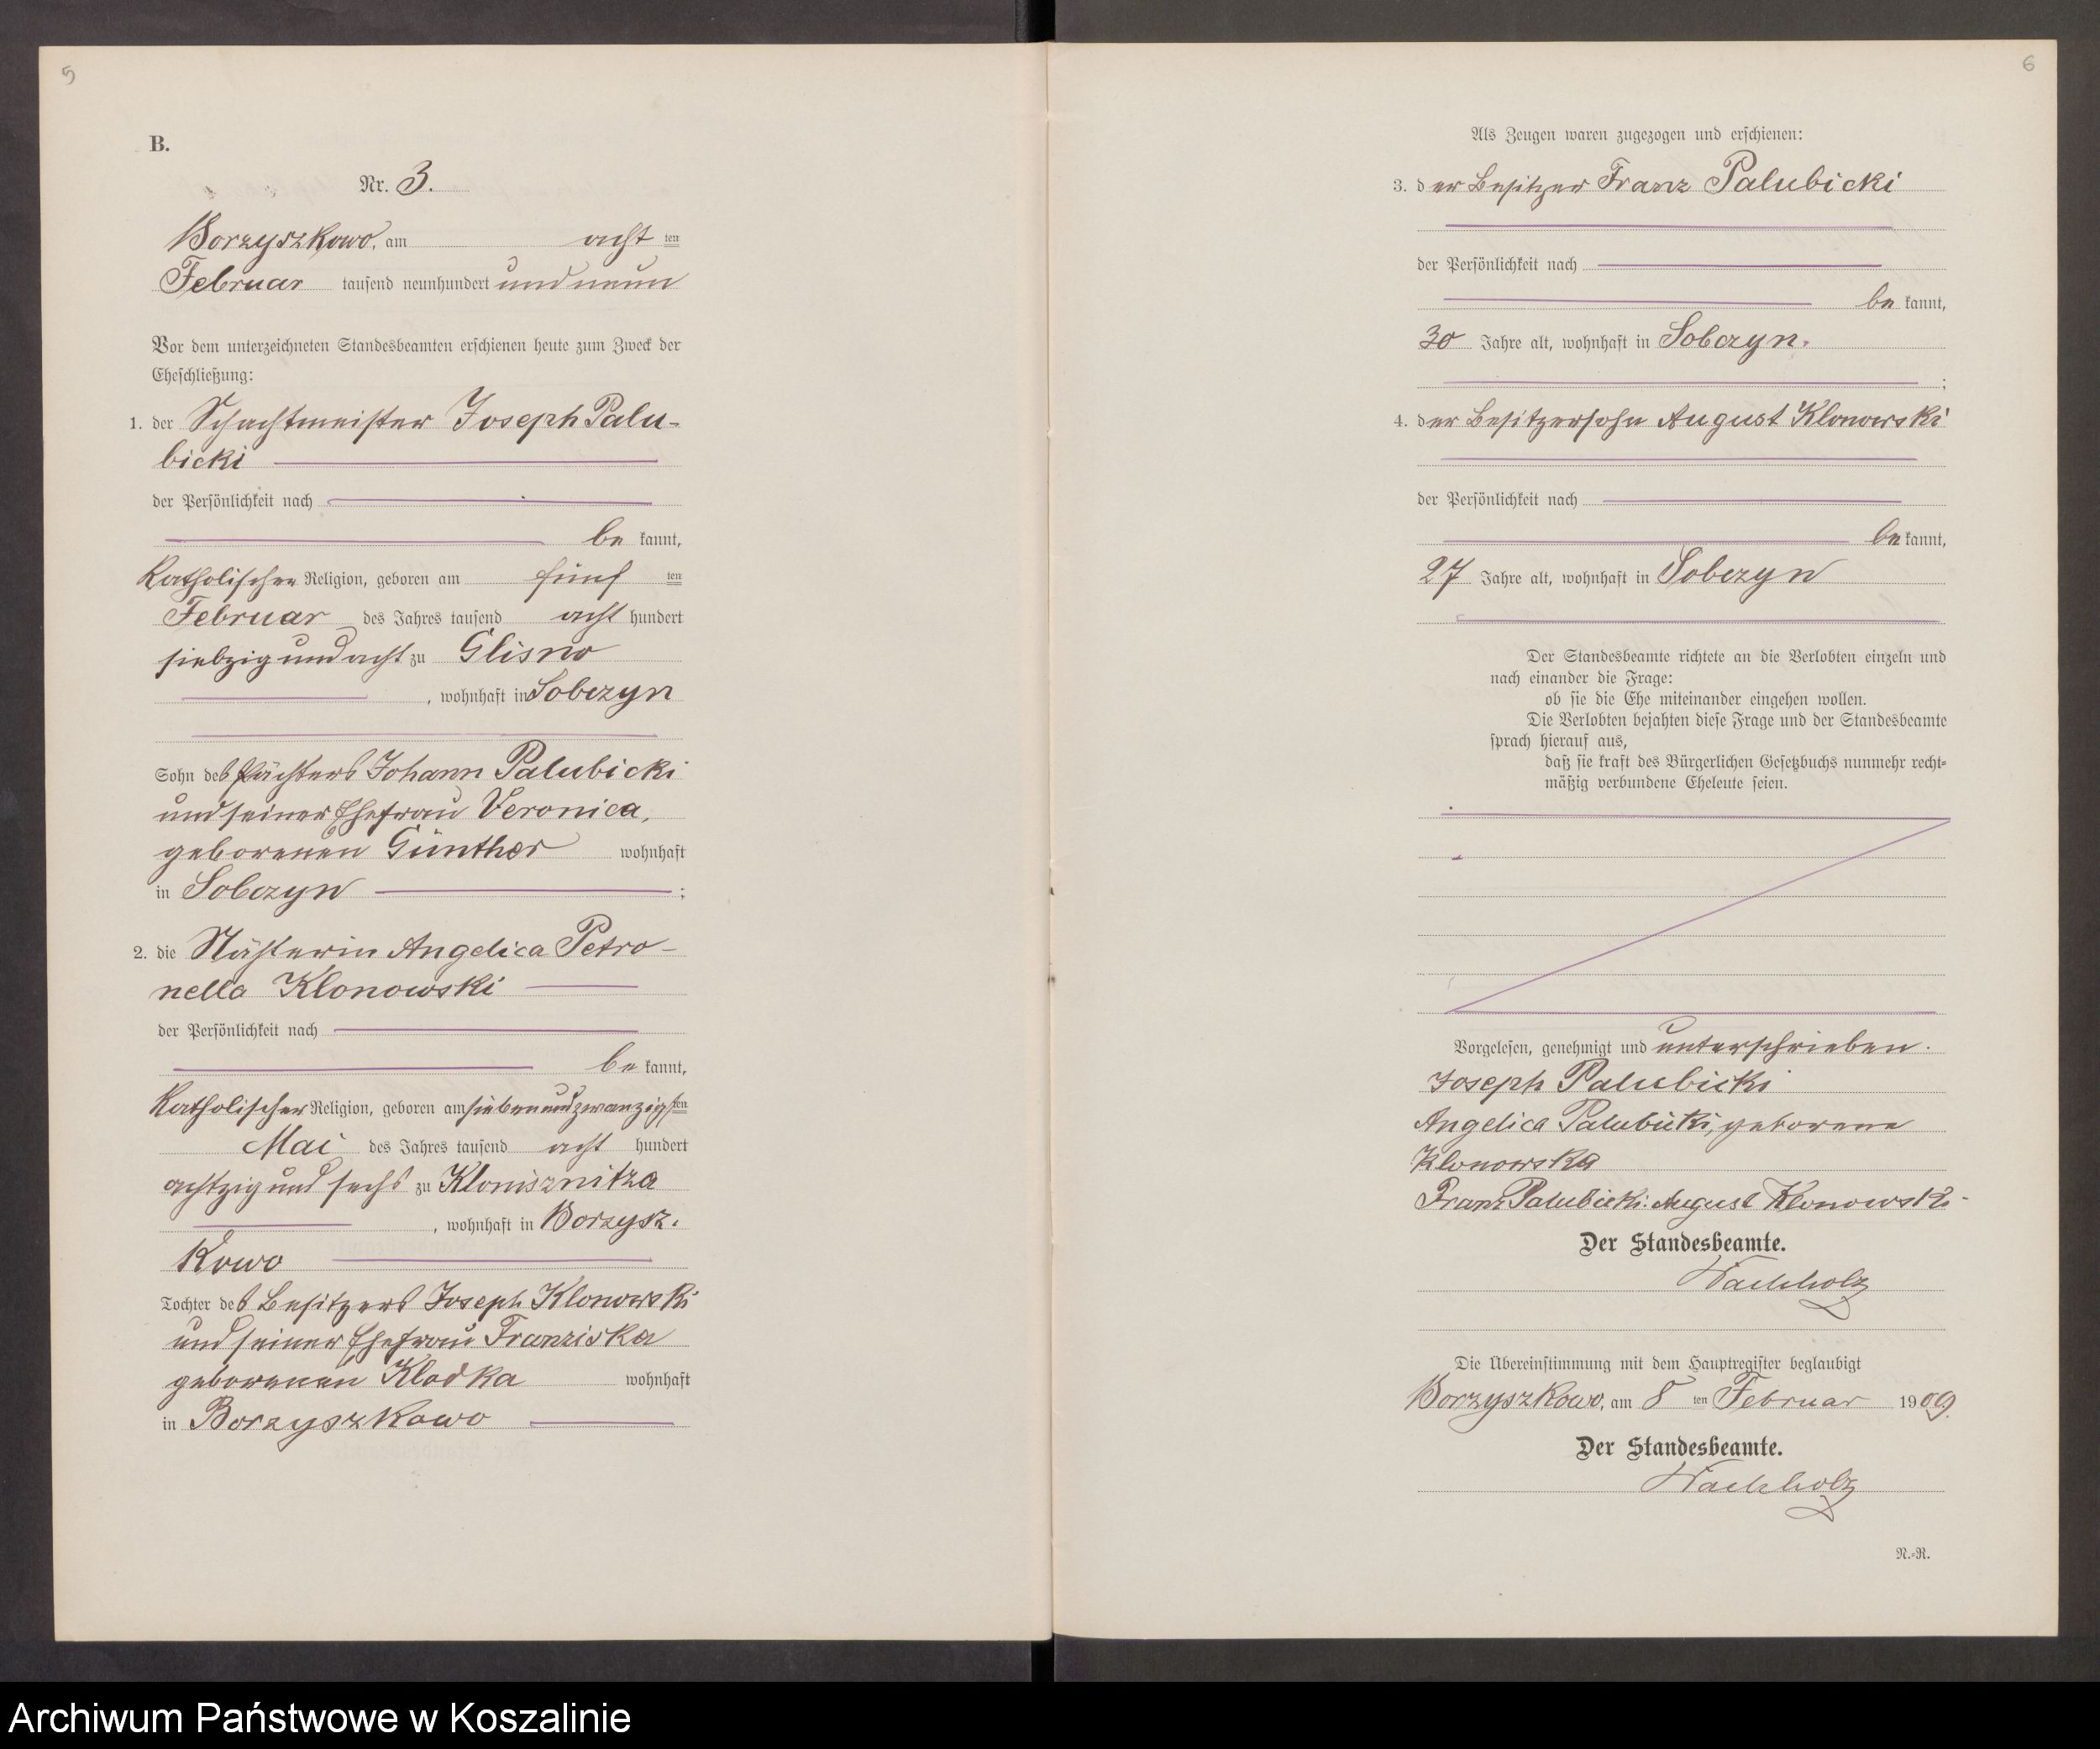 5
B.
Nr. 3.
Borzyszkowo, am acht ten
Februar tausend neunhundert und neun
Vor dem unterzeichneten Standesbeamten erschienen heute zum Zweck der
Eheschließung:
1. der Schachtmeister Joseph Palu-
bicki
der Persönlichkeit nach
be kannt,
katholischen Religion, geboren am fünf ten
Februar des Jahres tausend acht hundert
siebzig und acht zu Glisno
, wohnhaft in Sobczyn
Sohn des Pächters Johann Palubicki
und seiner Ehefrau Veronica,
geborenen Günther wohnhaft
in Sobczyn ;
2. die Näherin Angelica Petro-
nella Klonowski
der Persönlichkeit nach
be kannt,
katholischer Religion, geboren am siebenundzwanzigsten
Mai des Jahres tausend acht hundert
achtzig und sechs zu Klonisznitza
, wohnhaft in Borzysz-
kowo
Tochter des Besitzers Joseph Klonowski
und seiner Ehefrau Franziska
geborenen Klodka wohnhaft
in Borzyszkowo
6
Als Zeugen waren zugezogen und erschienen:
3. der Besitzer Franz Palubicki
der Persönlichkeit nach
be kannt,
30 Jahre alt, wohnhaft in Sobczyn.
;
4. der Besitzersohn August Klonowski
der Persönlichkeit nach
be kannt,
27 Jahre alt, wohnhaft in Sobczyn
Der Standesbeamte richtete an die Verlobten einzeln und
nach einander die Frage:
ob sie die Ehe miteinander eingehen wollen.
Die Verlobten bejahten diese Frage und der Standesbeamte
sprach hierauf aus,
daß sie kraft des Bürgerlichen Gesetzbuchs nunmehr recht-
mäßig verbundene Eheleute seien.
Vorgelesen, genehmigt und unterschrieben.
Joseph Palubicki
Angelica Palubicki, geborene
Klonowska
Franz Palubicki. August Klonowski.
Der Standesbeamte.
Wachholz
Die Übereinstimmung mit dem Hauptregister beglaubigt
Borzyszkowo, am 8 ten Februar 1909.
Der Standesbeamte.
Wachholz
N.-R.
Archiwum Państwowe w Koszalinie